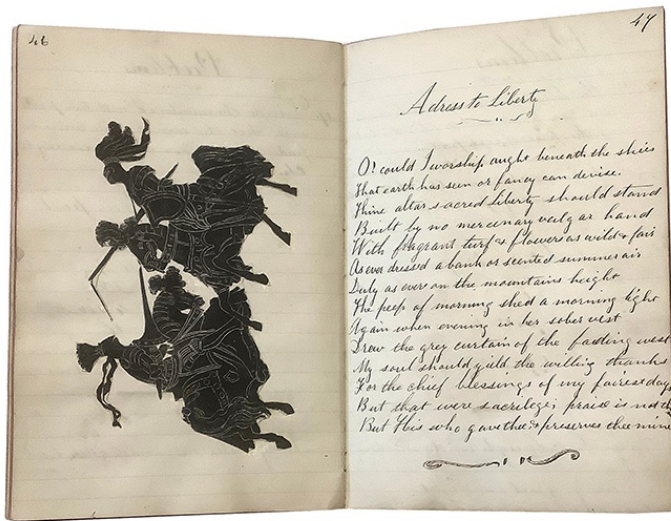 46
47
Adress to Liberty
O! could I worship aught beneath the skies
That earth has seen or fancy can devise.
Thine altar sacred Liberty should stand
Built by no mercenary vulgar hand
With fragrant turf & flowers as wild & fair
As ever dressed a bank or scented summer air
Duly as ever on the mountains height
The peep of morning shed a morning light
Again when evening in her sober vest
Drew the grey curtain of the fading west
My soul should yield the willing thanks
For the chief blessings of my fairest days
But that were sacrilege; praise is not
But His who gave thee & preserves thee mine